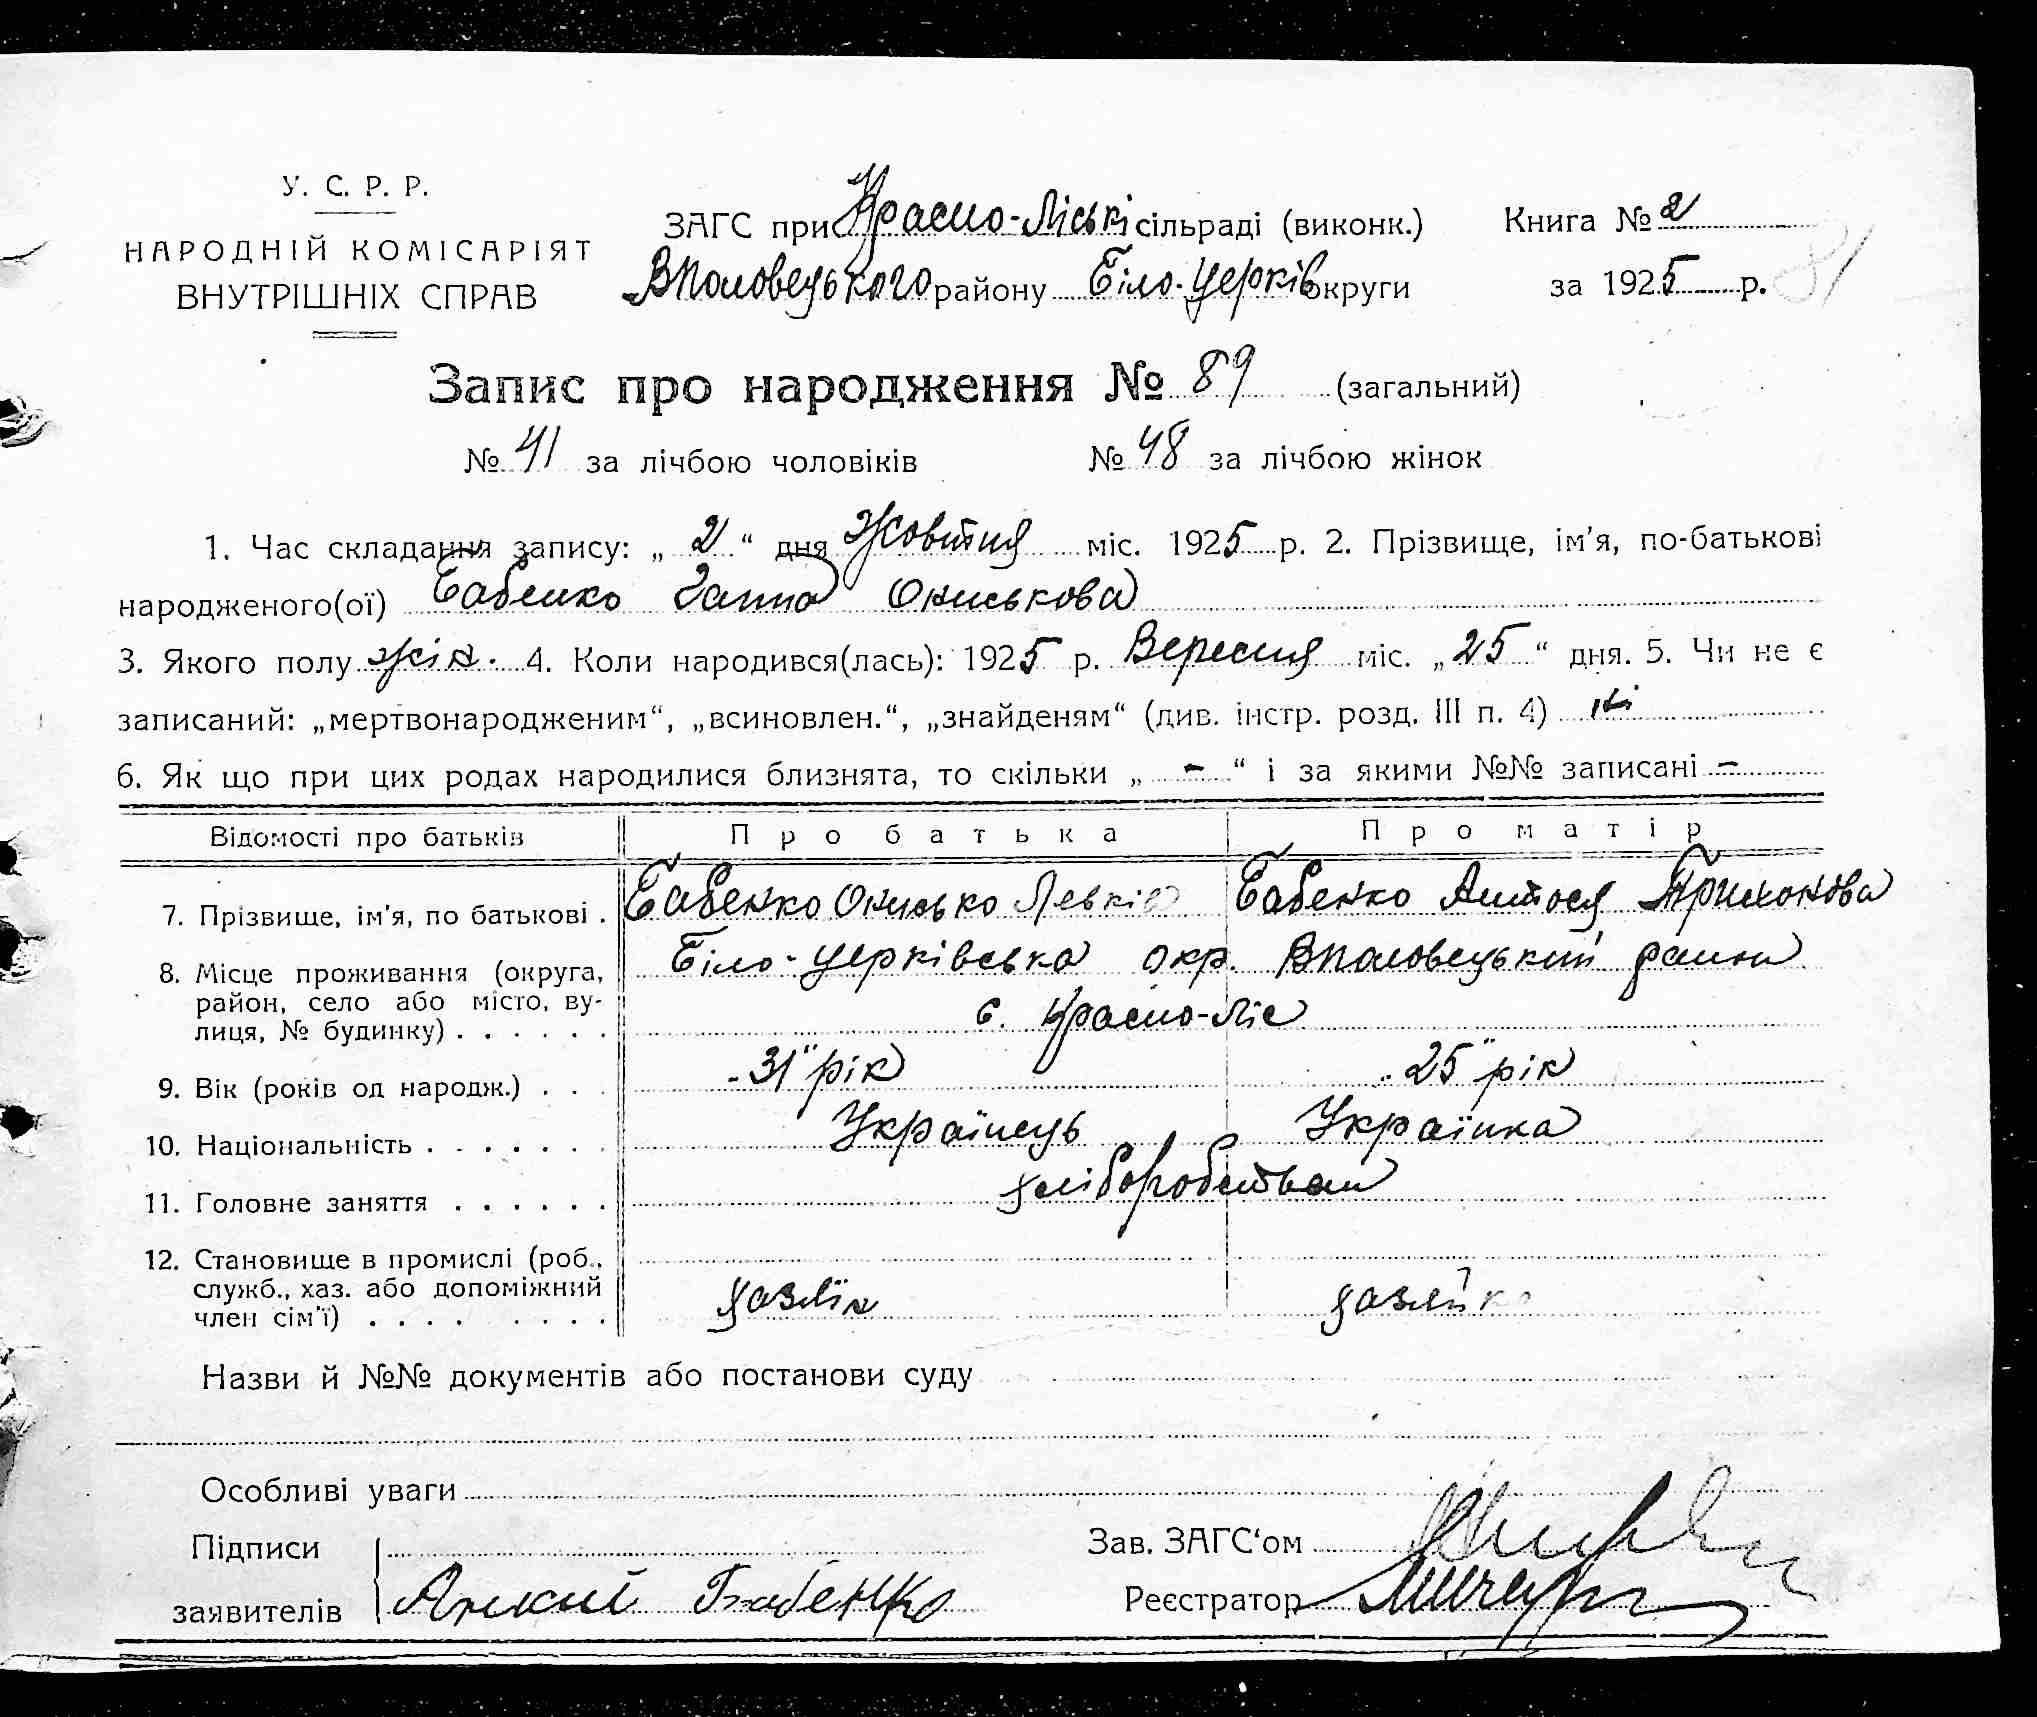 У. С. Р. Р.
НАРОДНІЙ КОМІСАРІЯТ
ВНУТРІШНІХ СПРАВ
ЗАГС при Красно-Ліські сільраді (виконк.) Книга № 2
Вполовецького району Біло-Церків округи за 1925 р.
81
Запис про народження № 89 (загальний)
№ 41 за лічбою чоловіків № 48 за лічбою жінок
1. Час складання запису: „ 2 “ дня Жовтня міс. 1925 р. 2. Прізвище, ім'я, по-батькові
народженого(ої) Бабенко Ганна Ониськова
3. Якого полу жін. 4. Коли народився(лась): 1925 р. Вересня міс. „ 25 “ дня. 5. Чи не є
записаний: „мертвонародженим“, „всиновлен.“, „знайденям“ (див. інстр. розд. III п. 4) ні
6. Як що при цих родах народилися близнята, то скільки „ - “ і за якими №№ записані -
Відомості про батьків Про батька Про матір
7. Прізвище, ім'я, по батькові . Бабенко Онисько Левків Бабенко Антося
8. Місце проживання (округа, Біло-Церківська окр. Вполовецький район
район, село або місто, ву-
лиця, № будинку) . . . . . . с. Красно-Ліс
9. Вік (років од народж.) . . . „31" рік „25" рік
10. Національність . . . . . . . Українець Українка
11. Головне заняття . . . . . . хліборобством
12. Становище в промислі (роб.,
служб., хаз. або допоміжний
член сім'ї) . . . . . . . . хазяїн хазяйка
Назви й №№ документів або постанови суду
Особливі уваги
Підписи Зав. ЗАГС‘ом
заявителів Бабенко Реєстратор